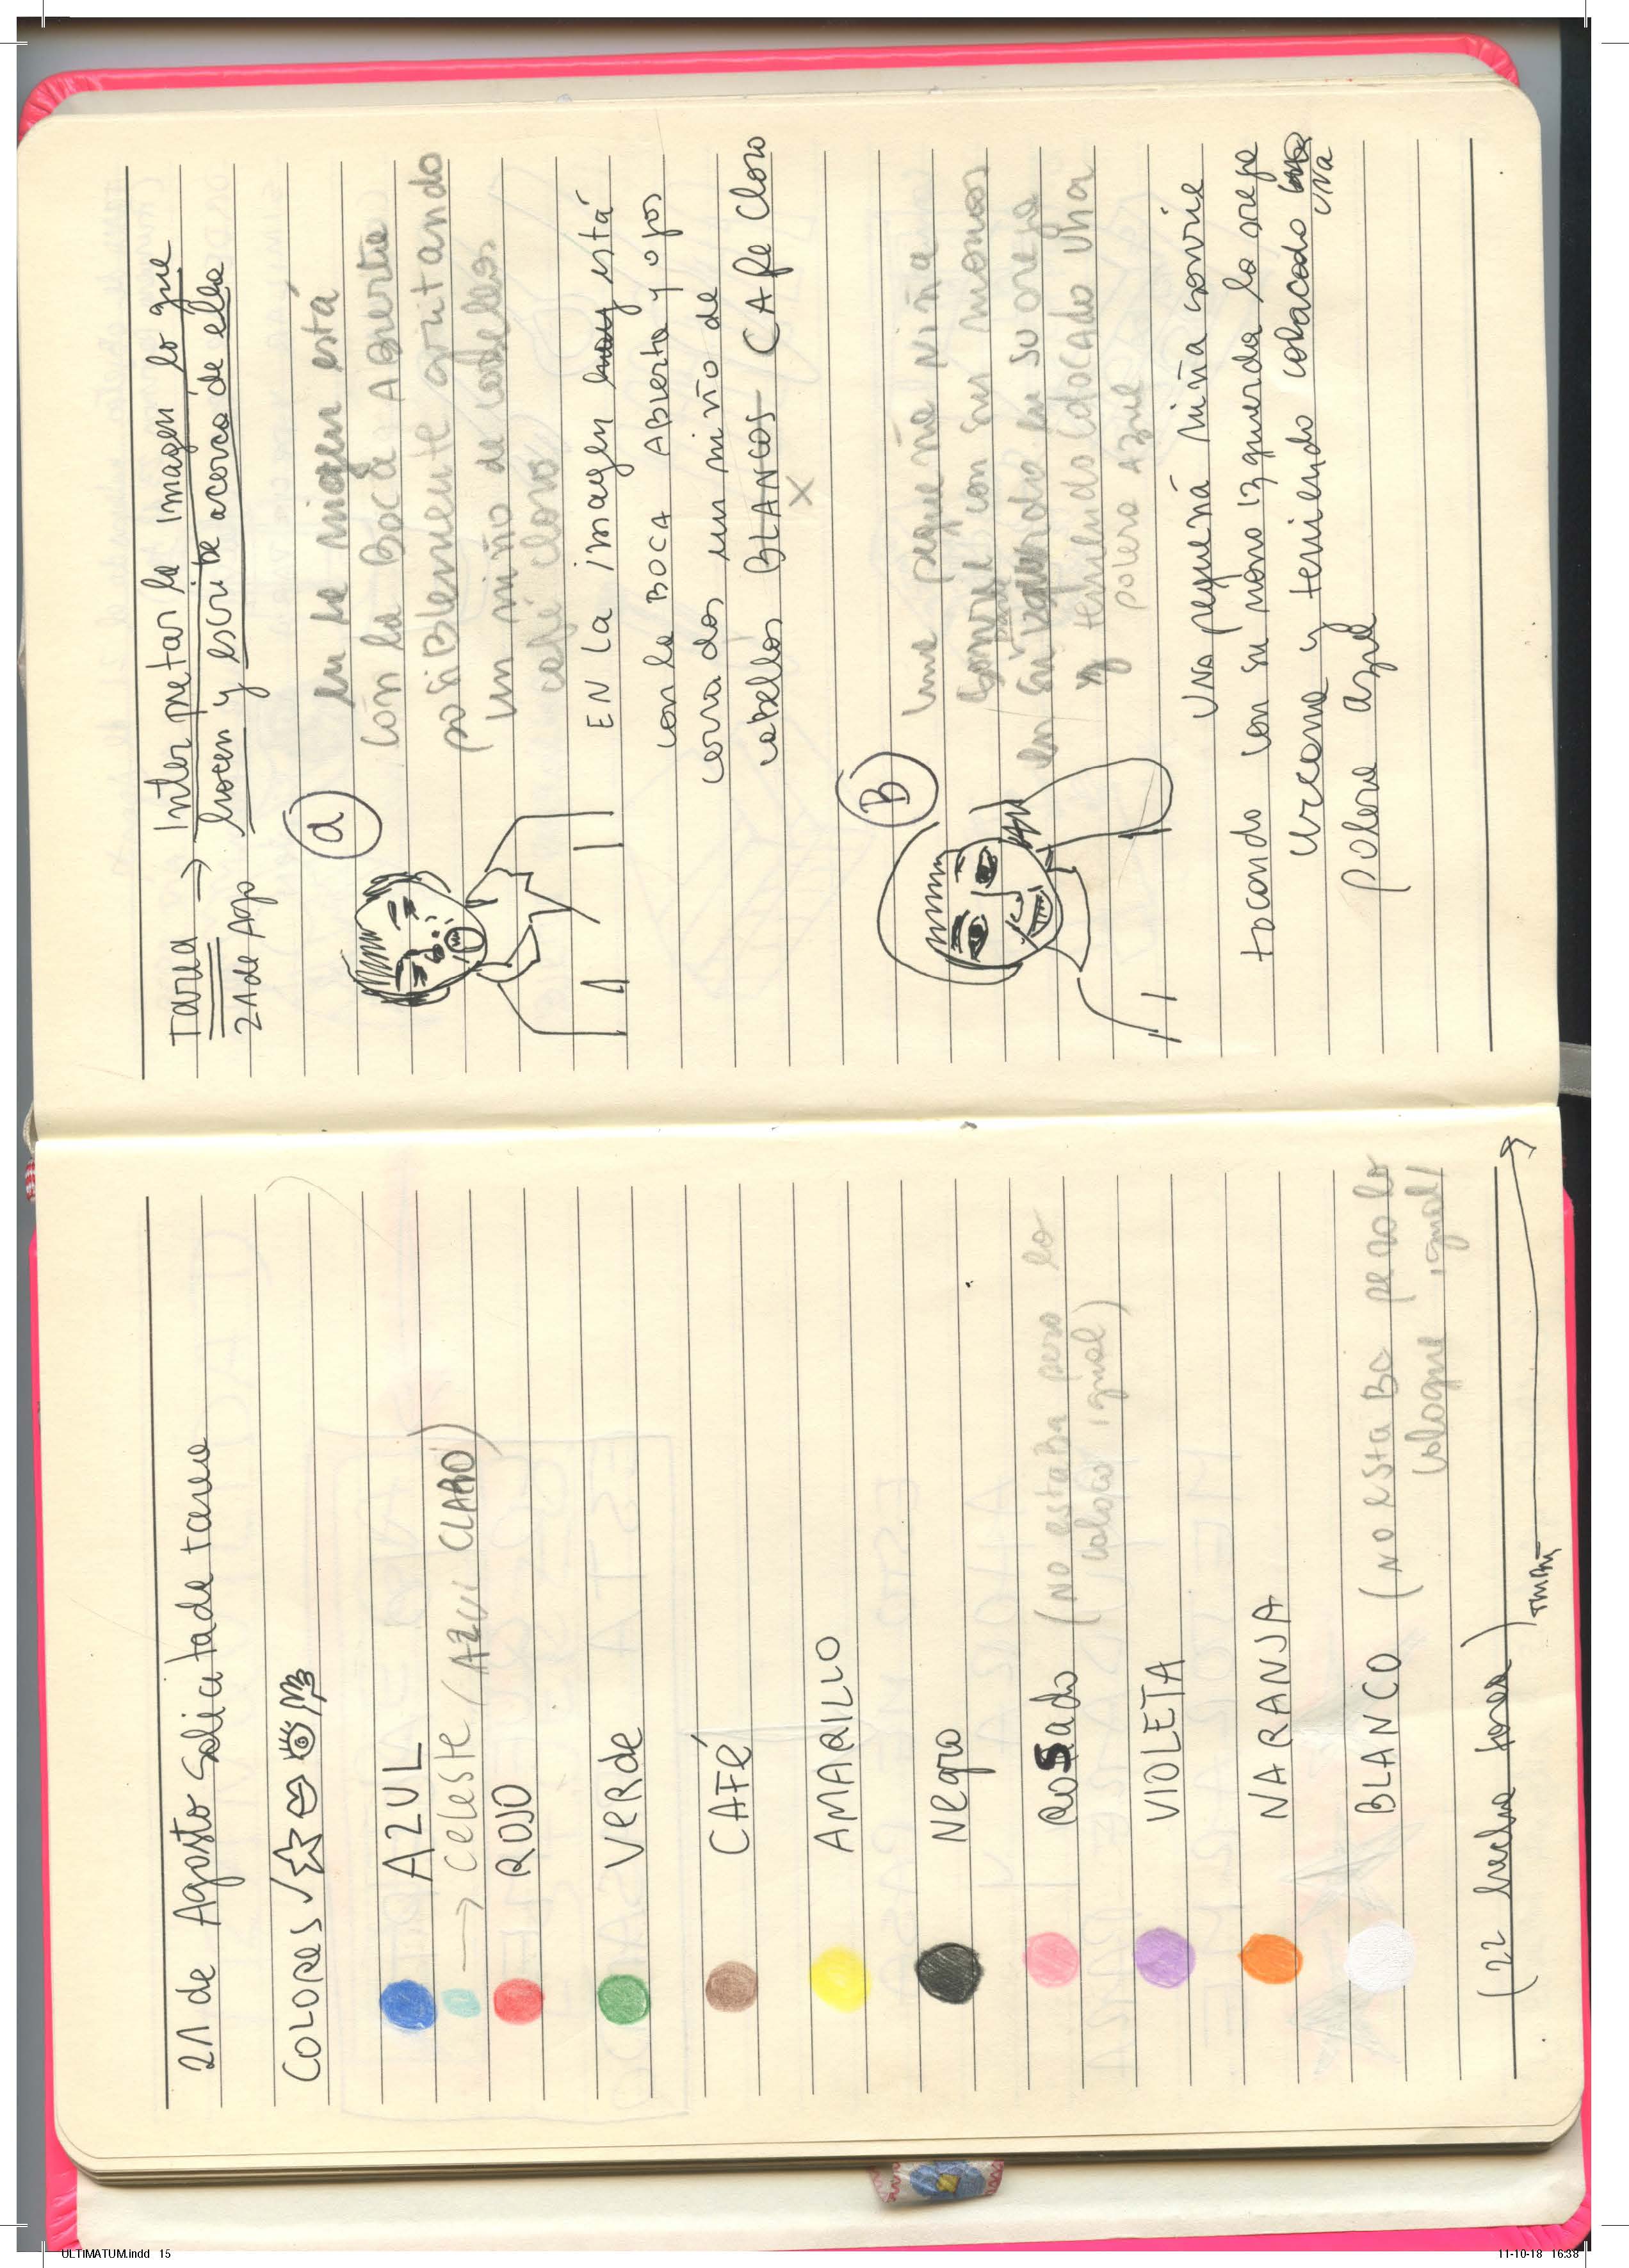 21 de Agosto Solicitade tarea
COLORES
AZUL
→ Celeste (AZUL CLARO)
ROJO
VERde
CAFÉ
AMARILLO
Negro
ROSado (No estaba pero lo
coloco igual)
VIOLETA
NARANJA
BLANCO (NO estaba pero lo
coloque igual)
(22 hecha tarea)
TMAÑ
Tarea → Interpretar la imagen lo que
hacen y escribe acerca de ella
21 de Ago
a
en la imagen está
con la Boca Abierta
posiblemente gritando
un niño de cabellos
café claro
EN La imagen hay está
con la BOCA ABIERTA y ojos
cerrados un niño de
cabellos BLANCOS CAFE Claro
X
B
una pequeña Niña
sonríe con sus manos
en su izquierda en su oreja
y teniendo colocado una
polera azul
Una pequeña niña sonríe
tocando con su mano izquierda la oreja
cercana y teniendo colocado
una
polera azul
ULTIMATUM.indd 15
11-10-18 16:38